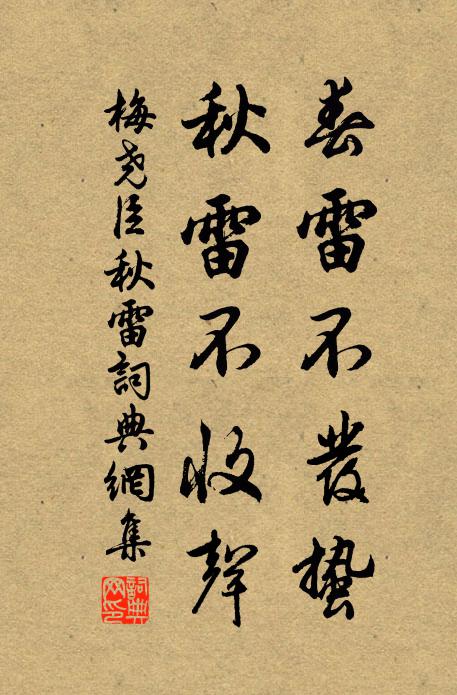 春雷不發蟄
秋雷不收聲
梅堯臣秋雷詞典網集
詞典网印